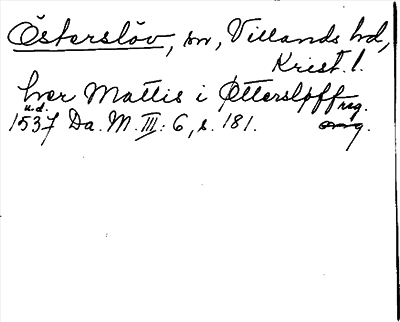 Österslöv, sn, Villands hd,
Krist. l.
her Mattis i Øttersløff reg.
u.d.
1537 Da. M. III: 6, s. 181. orig.